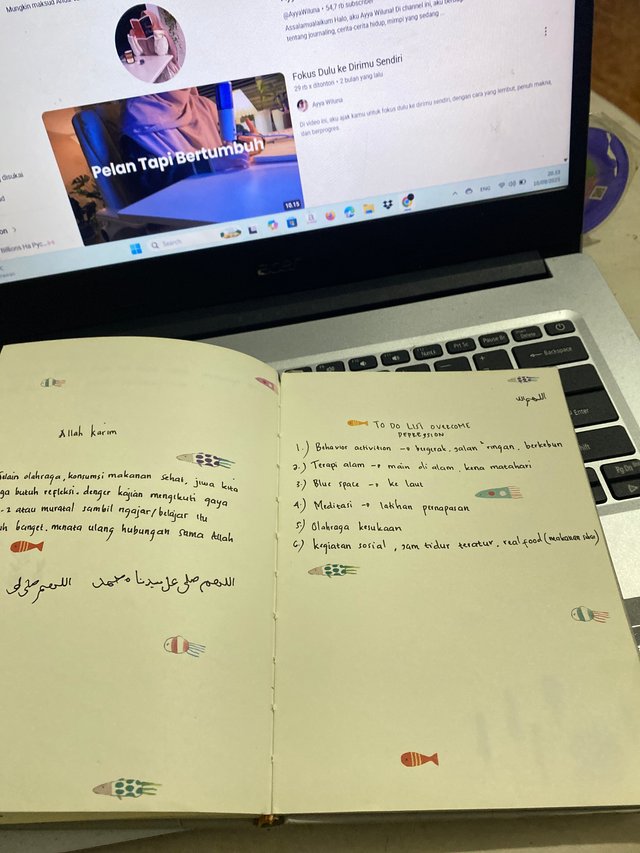 Mungkin maksud Anda
@AyyaWiluna • 54,7 rb subscriber
Assalamualaikum Halo, aku Ayya Wiluna! Di channel ini, aku
tentang journaling, cerita-cerita hidup, mimpi yang sedang ...
Fokus Dulu ke Dirimu Sendiri
29 rb x ditonton • 2 bulan yang lalu
Ayya Wiluna
Di video ini, aku ajak kamu untuk fokus dulu ke dirimu sendiri, dengan cara yang lembut, penuh makna,
dan berprogres.
Pelan Tapi Bertumbuh
10.15
disukai
Search
ENG
20.13
10/09/2025
acer
NumLk
Prt Sc
Pause Br
Delete
Backspace
Enter
Shift
Pg Dn
Allah karim
olahraga, konsumsi makanan sehat, jiwa kita
butuh refleksi. denger kajian mengikuti gaya
2 atau muratal sambil ngajar/belajar itu
banget. menata ulang hubungan sama Allah
اللهم صلى على سيدنا محمد اللهم صلى
اللهم
TO DO LIST OVERCOME
DEPRESSION
1.) Behavior activition → bergerak, jalan² ringan, berkebun
2.) Terapi alam → main di alam, kena matahari
3.) Blue space → ke laut
4.) Meditasi → latihan pernapasan
5) Olahraga kesukaan
6.) kegiatan sosial, jam tidur teratur, real food (makanan